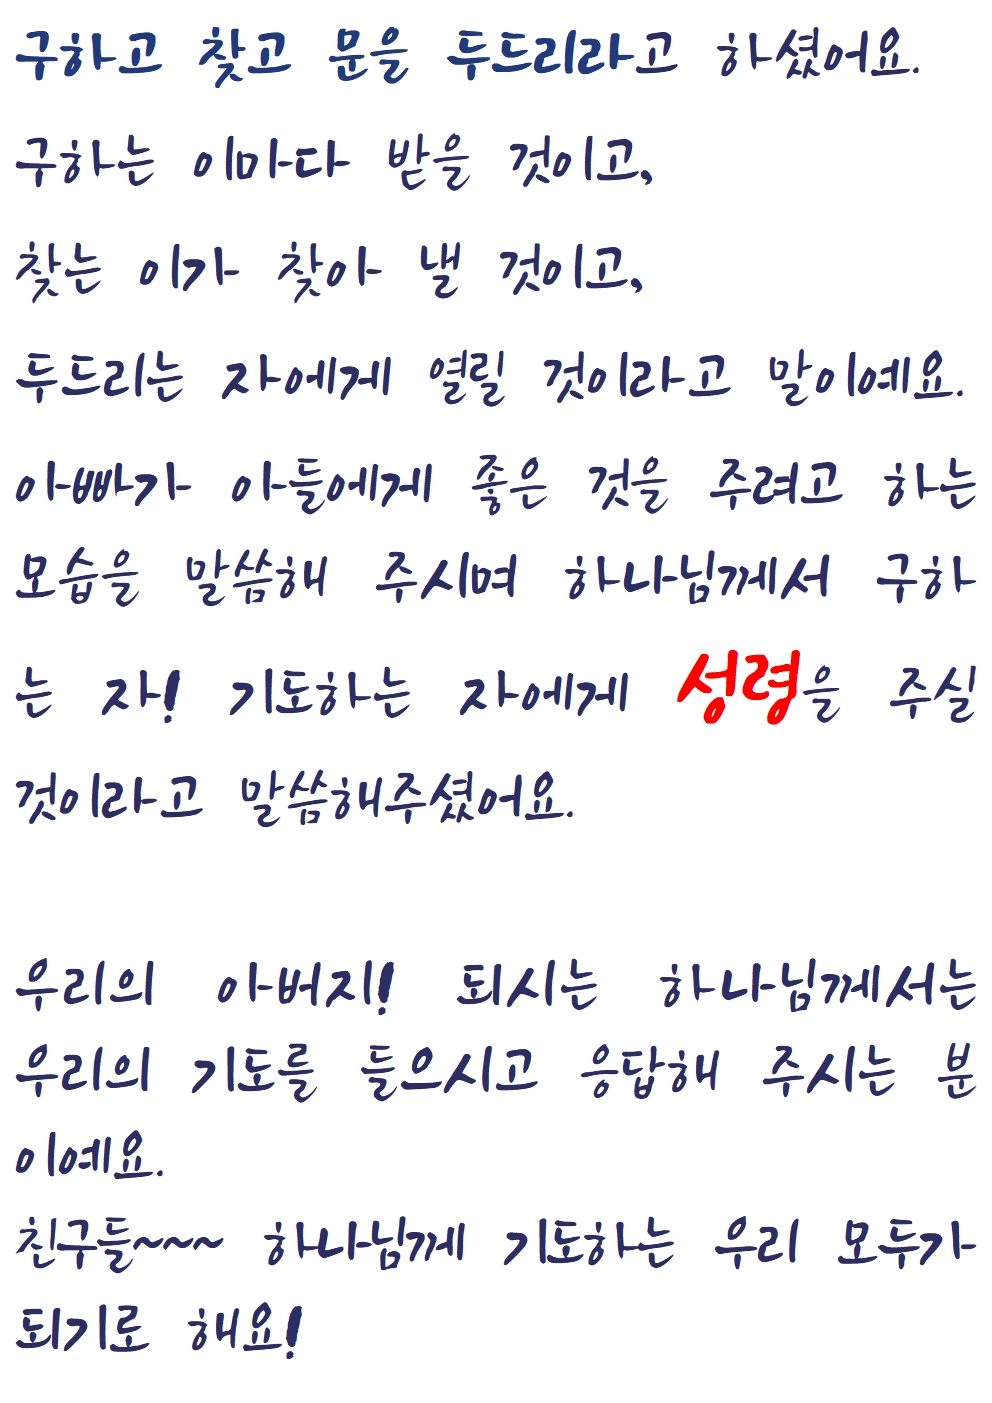 구하고 찾고 문을 두드리라고 하셨어요.
구하는 이마다 받을 것이고,
찾는 이가 찾아 낼 것이고,
두드리는 자에게 열릴 것이라고 말이예요.
아빠가 아들에게 좋은 것을 주려고 하는
모습을 말씀해 주시며 하나님께서 구하
는 자! 기도하는 자에게 성령을 주실
것이라고 말씀해주셨어요.
우리의 아버지! 되시는 하나님께서는
우리의 기도를 들으시고 응답해 주시는 분
이예요.
친구들~~~ 하나님께 기도하는 우리 모두가
되기로 해요!